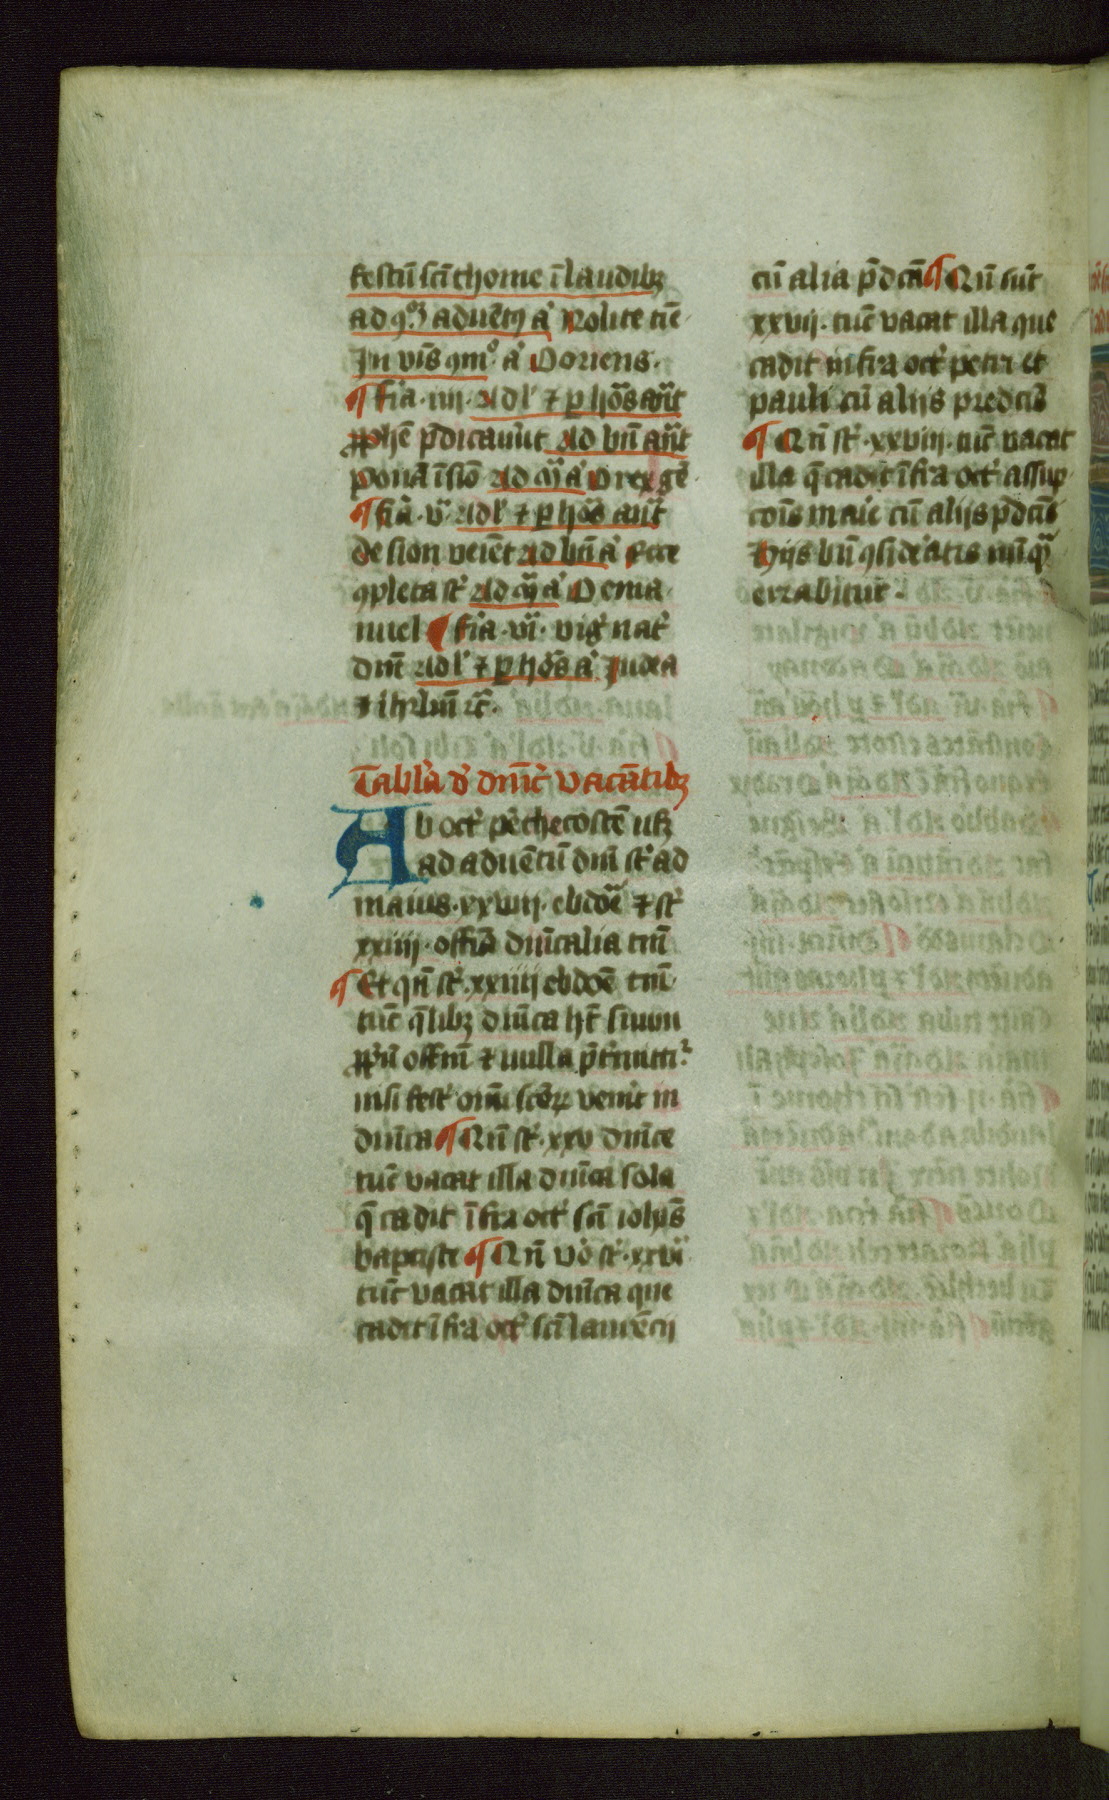 festū scī thome ī laudibꝫ
ad ꝯꝫ aduētꝯ a͛ Nolite tīe
In vīs ꝯm̊ a͛ O oriens ·
¶ fīa · iiij · Ad l' ⁊ ꝑ hōs añt
ꝓphē p̄dicauūt Ad bn̄ añt
Ponā ī siō Ad mͣ a͛ O rex gē
¶ fīa · v · Ad l' ⁊ ꝑ hōs añt
de sion veīet ad bn̄ a͛ Ecce
ꝯpleta sť Ad mͣ a͛ O ema
nuel ¶ fīa · vi · vig̛ nat͛
dn̄i Ad l' ⁊ ꝑ hōs a͛ Iudea
⁊ ihrl̄m ⁊c̄ ·
Tabl̛a d̛ dn̄ic̛ vacātibꝫ
Ab oct͛ pēthecostē usꝫ
ad aduētū dn̄i sť ad
maius · xxviij · ebdōe ⁊ sť
xxiiij · offīa dn̄icalia tm̄
¶ Et qn̄ sť xxiiij ebdōe tm̄
tūc q̄libꝫ dn̄ica hꝫ suum
ꝓpū offm̄ ⁊ nulla p̄t̛mitti͛
nisi fest͛ om̄i scōꝝ venīt in
dn̄ica ¶ Qn̄ sť · xxv dn̄ice
tūc vacat illa dn̄ica sola
q̄ cadit īfra oct͛ scī ioħis
baptiste ¶ Qn̄ vō sť · xxvi
tūc vacat illa dn̄ica que
cadit īfra oct͛ scī laurēcij
cū alia p̄dcā ¶ Qn̄ sūt
xxvij · tūc vacat illa que
cadit infra oct͛ petri et
pauli cū alijs predcīs
¶ Qn̄ sť · xxviij · tūc vacat
illa q̄ cadit īfra oct͛ assup
coīs marīe cū alijs p̄dcīs
Hijs bn̄ ꝯsid̛atis nūqͣ
errabitur ·